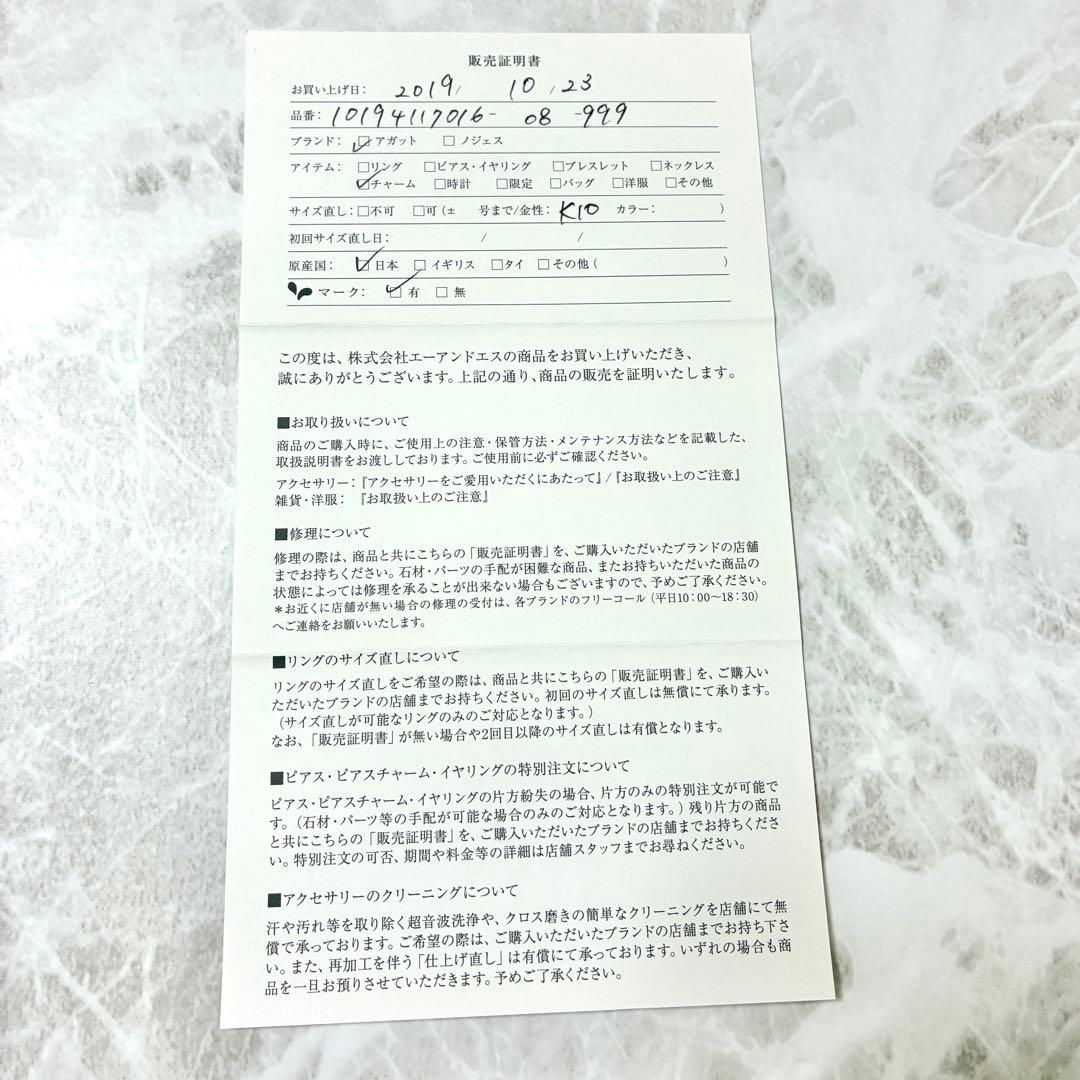 販売証明書
お買い上げ日： 2019/ 10 /23
品番：10194117016- 08 -999
ブランド： ☑アガット □ ノジェス
アイテム： □リング □ピアス・イヤリング □ブレスレット □ネックレス
☑チャーム □時計 □限定 □バッグ □洋服 □その他
サイズ直し：□不可 □可（± 号まで/金性：K10 カラー： ）
初回サイズ直し日： / /
原産国： ☑日本 □イギリス □タイ □その他（ ）
マーク： ☑ 有 □ 無
この度は、株式会社エーアンドエスの商品をお買い上げいただき、
誠にありがとうございます。上記の通り、商品の販売を証明いたします。
■お取り扱いについて
商品のご購入時に、ご使用上の注意・保管方法・メンテナンス方法などを記載した、
取扱説明書をお渡ししております。ご使用前に必ずご確認ください。
アクセサリー：『アクセサリーをご愛用いただくにあたって』/『お取扱い上のご注意』
雑貨・洋服： 『お取扱い上のご注意』
■修理について
修理の際は、商品と共にこちらの「販売証明書」を、ご購入いただいたブランドの店舗
までお持ちください。石材・パーツの手配が困難な商品、またお持ちいただいた商品の
状態によっては修理を承ることが出来ない場合もございますので、予めご了承ください。
＊お近くに店舗が無い場合の修理の受付は、各ブランドのフリーコール（平日10：00〜18：30）
へご連絡をお願いいたします。
■リングのサイズ直しについて
リングのサイズ直しをご希望の際は、商品と共にこちらの「販売証明書」を、ご購入い
ただいたブランドの店舗までお持ちください。初回のサイズ直しは無償にて承ります。
（サイズ直しが可能なリングのみのご対応となります。）
なお、「販売証明書」が無い場合や2回目以降のサイズ直しは有償となります。
■ピアス・ピアスチャーム・イヤリングの特別注文について
ピアス・ピアスチャーム・イヤリングの片方紛失の場合、片方のみの特別注文が可能で
す。（石材・パーツ等の手配が可能な場合のみのご対応となります。）残り片方の商品
と共にこちらの「販売証明書」を、ご購入いただいたブランドの店舗までお持ちくださ
い。特別注文の可否、期間や料金等の詳細は店舗スタッフまでお尋ねください。
■アクセサリーのクリーニングについて
汗や汚れ等を取り除く超音波洗浄や、クロス磨きの簡単なクリーニングを店舗にて無
償で承っております。ご希望の際は、ご購入いただいたブランドの店舗までお持ち下さ
い。また、再加工を伴う「仕上げ直し」は有償にて承っております。いずれの場合も商
品を一旦お預りさせていただきます。予めご了承ください。